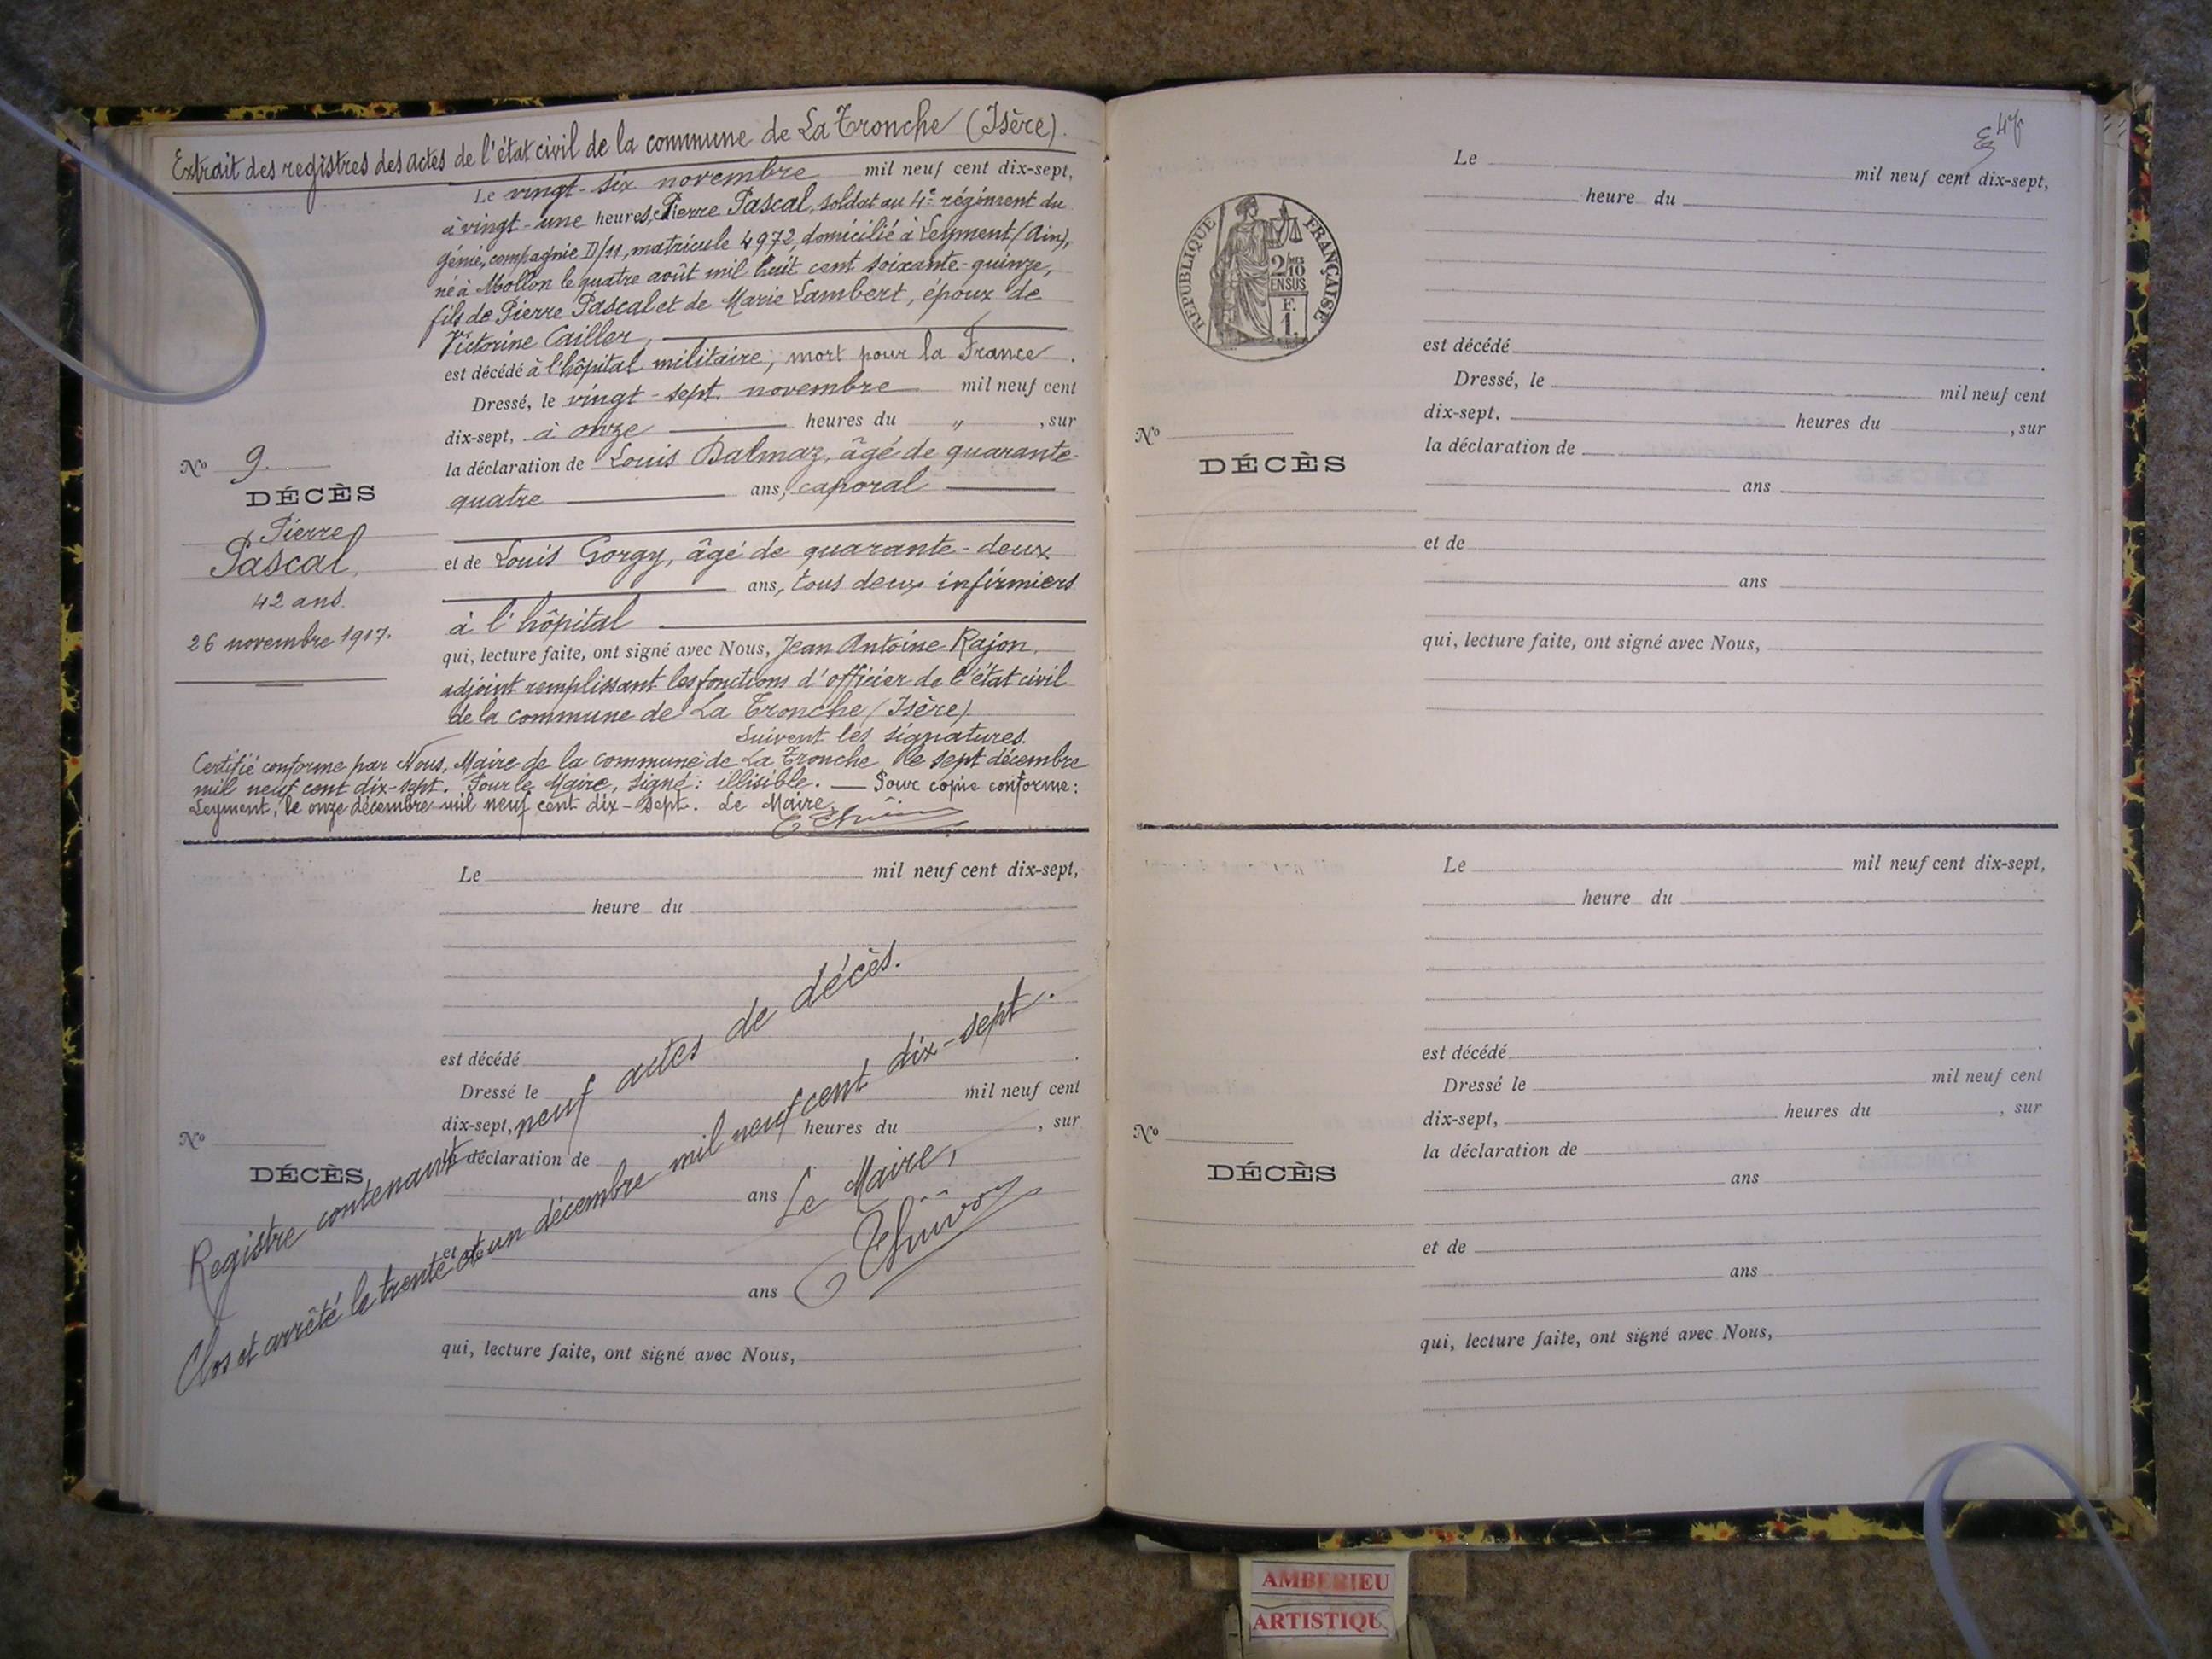 Extrait des registres des actes de l'état civil de la commune de La Tronche (Isère).
Le vingt-six novembre mil neuf cent dix-sept,
à vingt-une heures, Pierre Pascal, soldat au 4e régiment du
génie, compagnie D/11, matricule 4972, domicilié à Leyment (Ain),
né à Mollon le quatre août mil huit cent soixante-quinze,
fils de Pierre Pascal et de Marie Lambert, époux de
Victorine Cailler,
est décédé à l'hôpital militaire, mort pour la France.
Dressé, le vingt-sept novembre mil neuf cent
dix-sept, à onze heures du " , sur
la déclaration de Louis Dalmaz, âgé de quarante-
quatre ans, caporal
et de Louis Gorgy, âgé de quarante-deux
ans, tous deux infirmiers
à l'hôpital
qui, lecture faite, ont signé avec Nous, Jean Antoine Rajon,
adjoint remplissant les fonctions d'officier de l'état civil
de la commune de La Tronche (Isère)
Suivent les signatures.
Certifié conforme par Nous, Maire de la commune de La Tronche le sept décembre
mil neuf cent dix-sept. Pour le Maire, signé : illisible. — Pour copie conforme :
Leyment, le onze décembre mil neuf cent dix-sept. Le Maire,
No 9.
DÉCÈS
Pierre
Pascal,
42 ans.
26 novembre 1917.
Le mil neuf cent dix-sept,
heure du
est décédé .
Dressé le mil neuf cent
dix-sept, heures du , sur
la déclaration de
ans
ans
qui, lecture faite, ont signé avec Nous,
No
DÉCÈS
Registre contenant neuf actes de décès.
Clos et arrêté le trente et un décembre mil neuf cent dix-sept.
Le Maire,
Le mil neuf cent dix-sept,
heure du
est décédé .
Dressé, le mil neuf cent
dix-sept. heures du , sur
la déclaration de
ans
et de
ans
qui, lecture faite, ont signé avec Nous,
RÉPUBLIQUE FRANÇAISE
2/10
EN SUS
F.
1.
No
DÉCÈS
Le mil neuf cent dix-sept,
heure du
est décédé .
Dressé le mil neuf cent
dix-sept, heures du , sur
la déclaration de
ans
et de
ans
qui, lecture faite, ont signé avec Nous,
No
DÉCÈS
AMBERIEU
ARTISTIQU